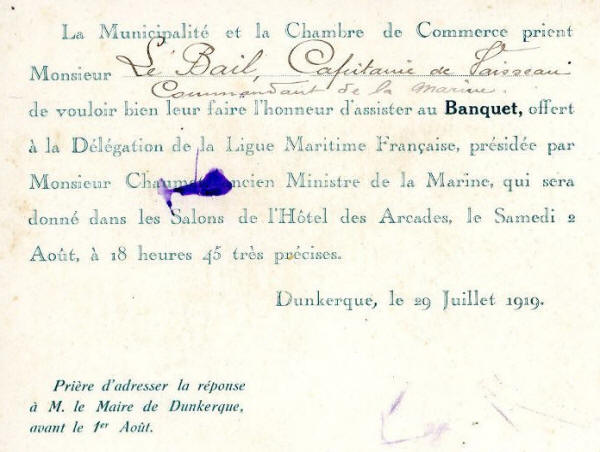 La Municipalité et la Chambre de Commerce prient
Monsieur Le Bail, Capitaine de Vaisseau
Commandant de la Marine.
de vouloir bien leur faire l'honneur d'assister au Banquet, offert
à la Délégation de la Ligue Maritime Française, présidée par
Monsieur Ministre de la Marine, qui sera
donné dans les Salons de l'Hôtel des Arcades, le Samedi 2
Août, à 18 heures 45 très précises.
Dunkerque, le 29 Juillet 1919.
Prière d'adresser la réponse
à M. le Maire de Dunkerque,
avant le 1er Août.